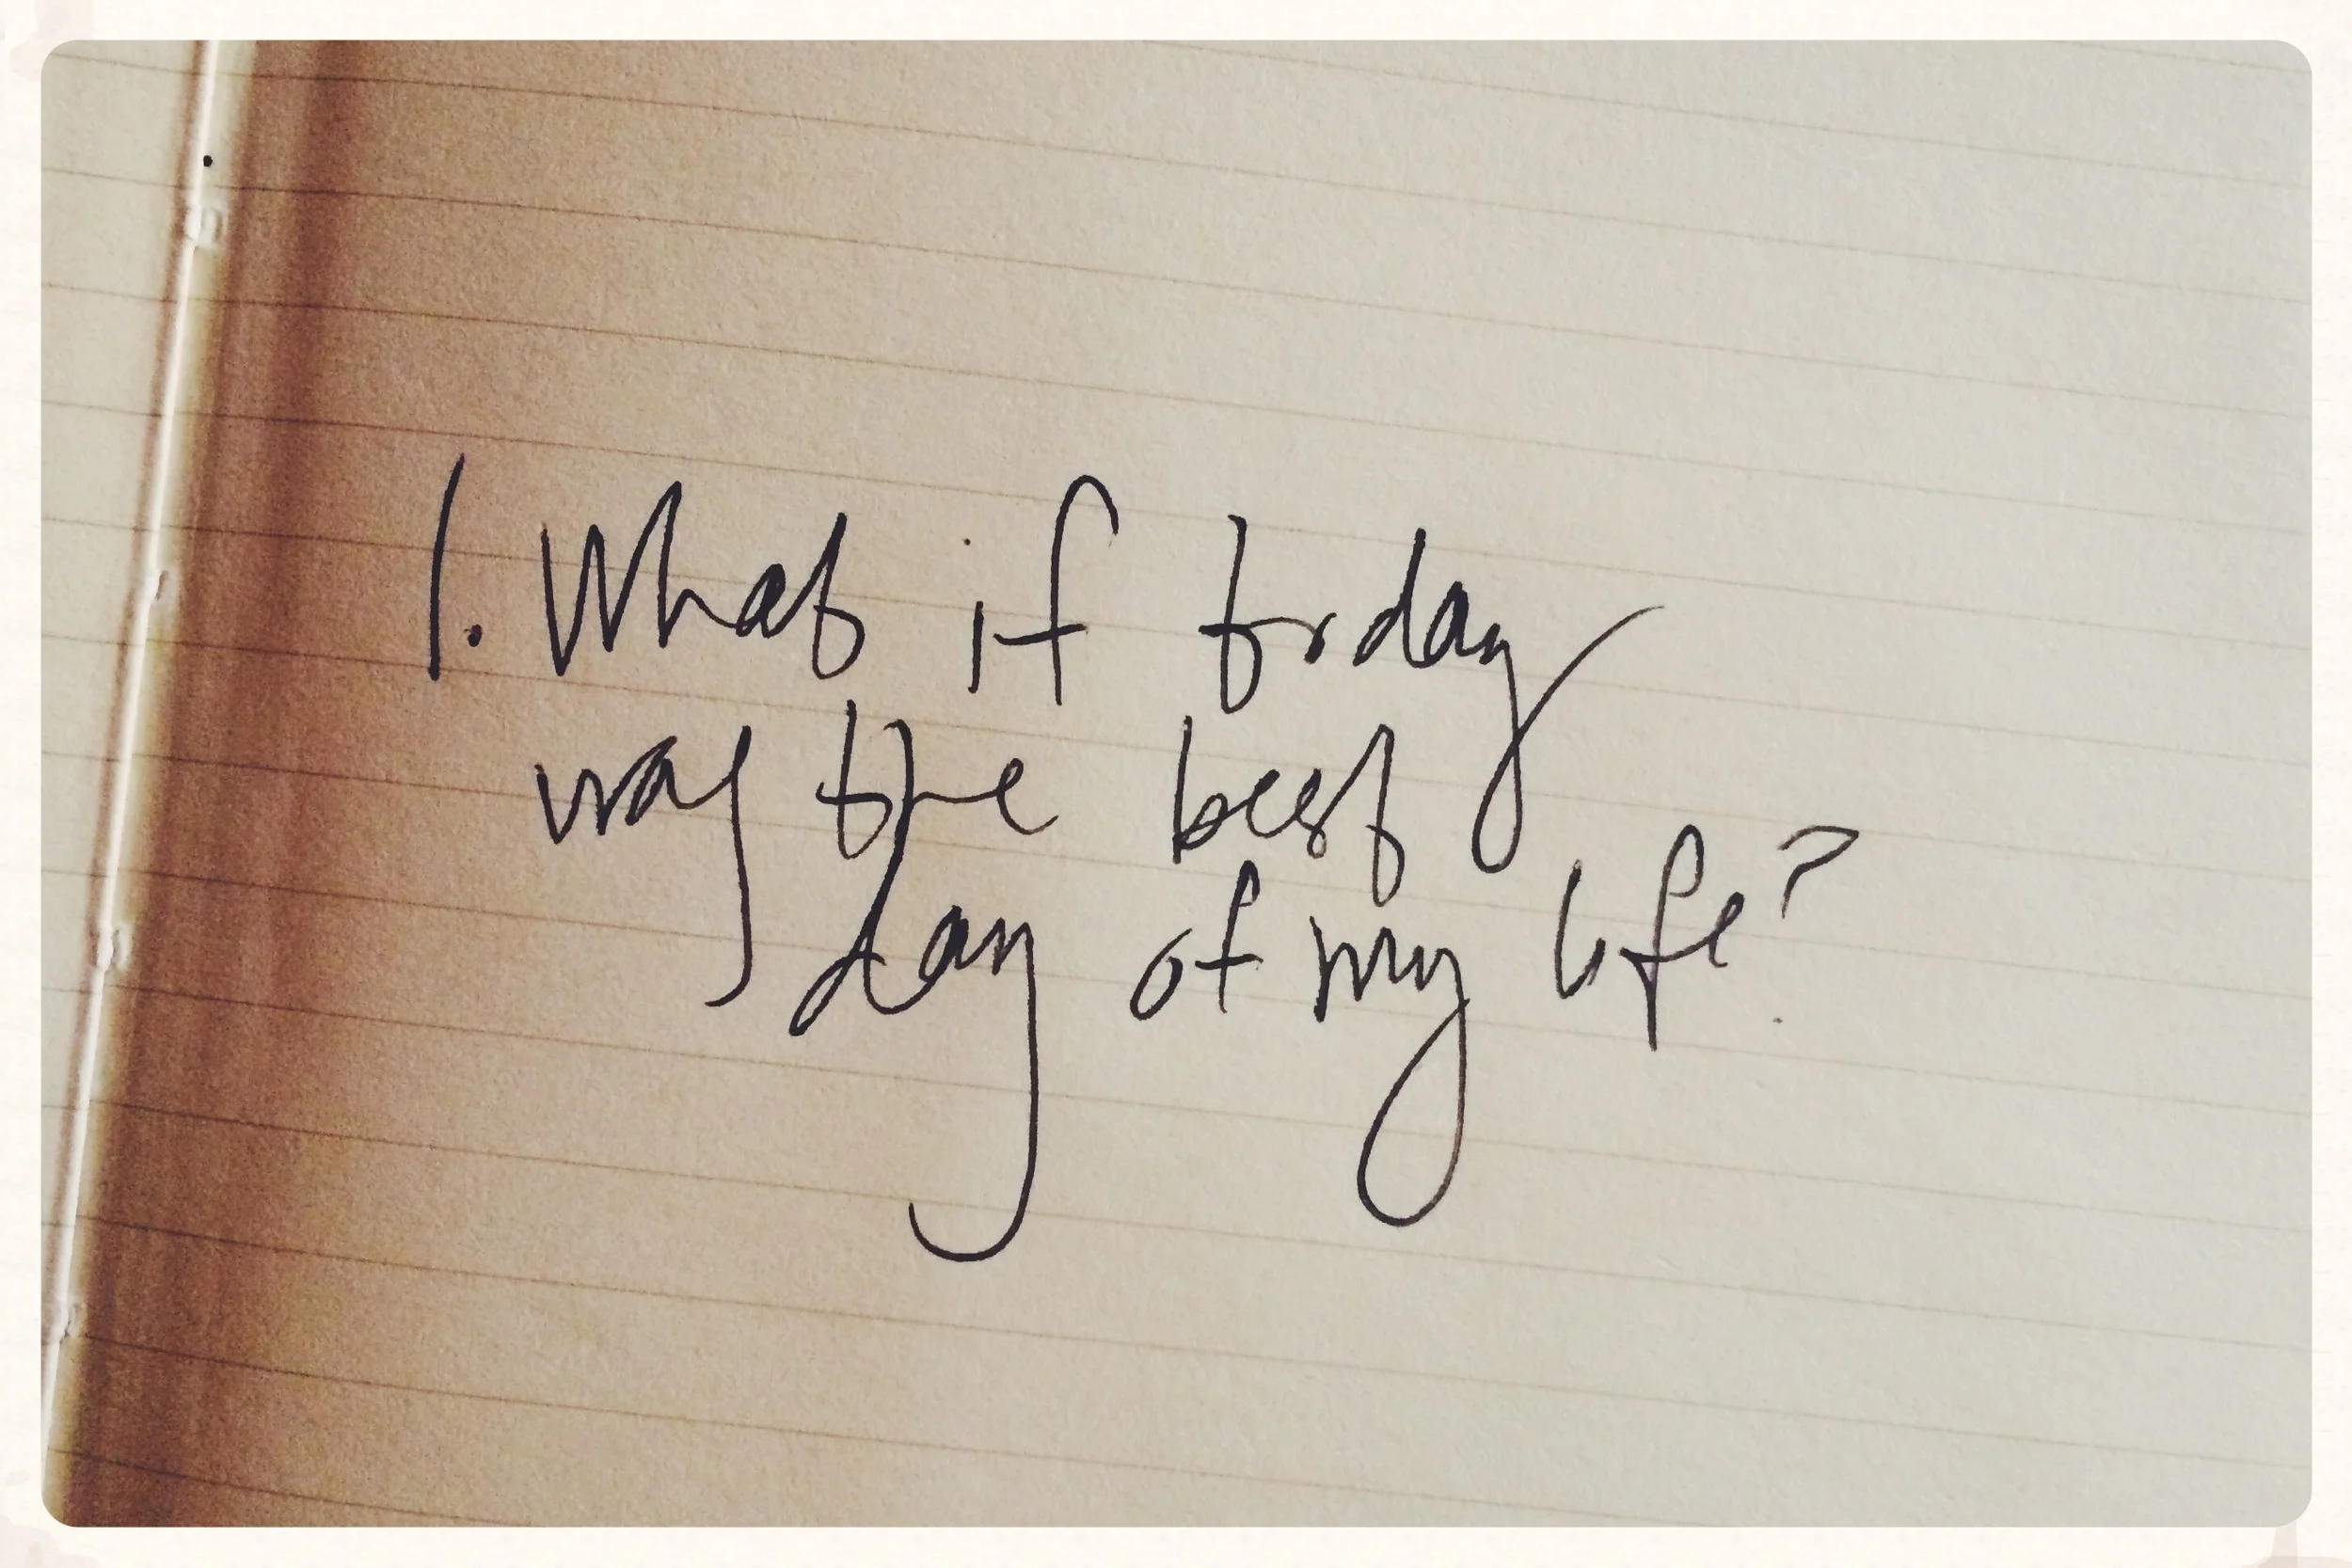 1. What if today
was the best
day of my life?